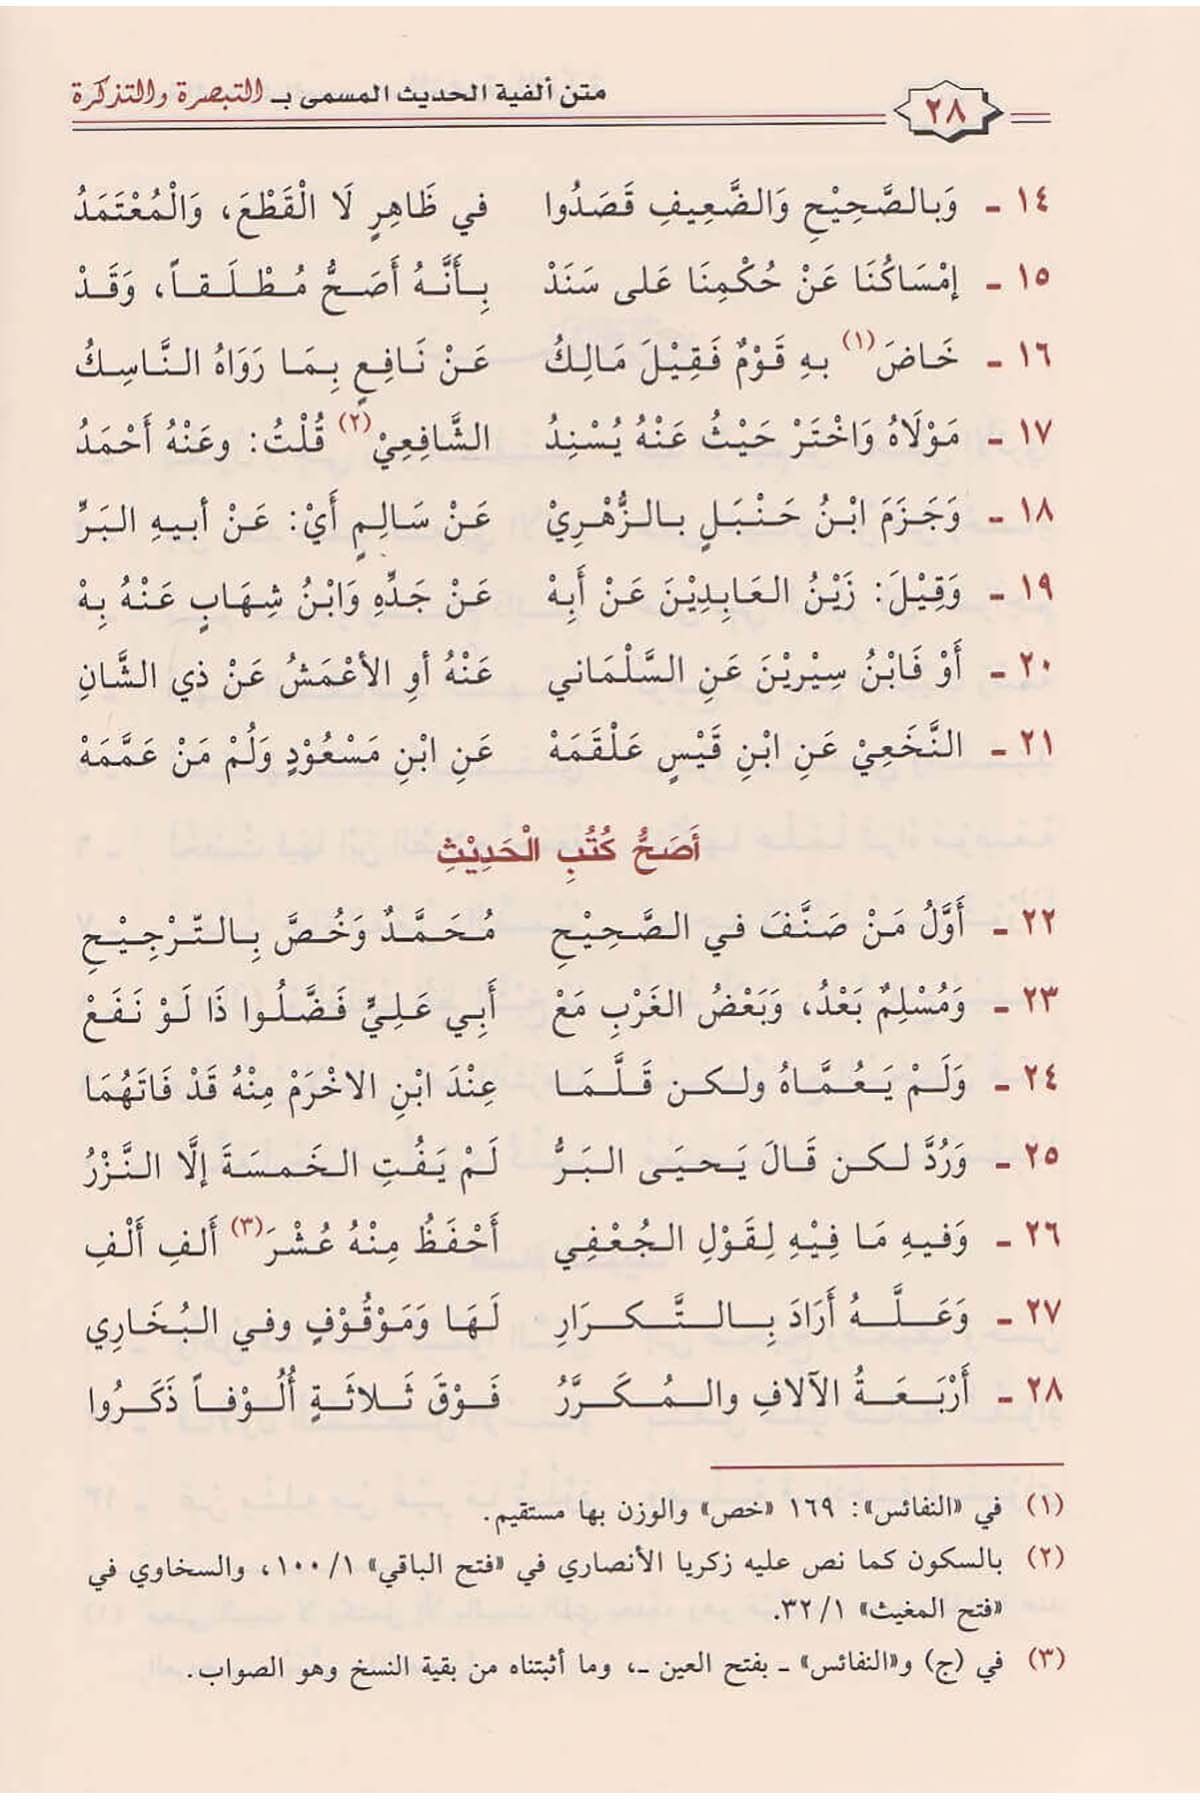 ٢٨ متن ألفية الحديث المسمى بـ التبصرة والتذكرة
١٤ ـ وَبالصَّحِيْحِ وَالضَّعِيفِ قَصَدُوا في ظَاهِرٍ لَا الْقَطْعَ، وَالْمُعْتَمَدُ
١٥ ـ إمْسَاكُنَا عَنْ حُكْمِنَا عَلى سَنَدْ بِأَنَّهُ أَصَحُّ مُطْلَقاً، وَقَدْ
١٦ ـ خَاضَ(١) بهِ قَوْمٌ فَقِيْلَ مَالِكُ عَنْ نَافِعٍ بِمَا رَوَاهُ النَّاسِكُ
١٧ ـ مَوْلَاهُ وَاخْتَرْ حَيْثُ عَنْهُ يُسْنِدُ الشَّافِعِيْ(٢) قُلْتُ: وعَنْهُ أَحْمَدُ
١٨ ـ وَجَزَمَ ابْنُ حَنْبَلٍ بالزُّهْرِيْ عَنْ سَالِمٍ أَيْ: عَنْ أبيهِ البَرِّ
١٩ ـ وَقِيْلَ: زَيْنُ العَابِدِيْنَ عَنْ أَبِهْ عَنْ جَدِّهِ وَابْنُ شِهَابٍ عَنْهُ بِهْ
٢٠ ـ أَوْ فَابْنُ سِيْرِيْنَ عَنِ السَّلْمَاني عَنْهُ أوِ الأعْمَشُ عَنْ ذي الشَّانِ
٢١ ـ النَّخَعِيْ عَنِ ابْنِ قَيْسٍ عَلْقَمَهْ عَنِ ابْنِ مَسْعُوْدٍ وَلُمْ مَنْ عَمَّمَهْ
أَصَحُّ كُتُبِ الْحَدِيْثِ
٢٢ ـ أَوَّلُ مَنْ صَنَّفَ في الصَّحِيْحِ مُحَمَّدٌ وَخُصَّ بِالتّرْجِيْحِ
٢٣ ـ وَمُسْلِمٌ بَعْدُ، وَبَعْضُ الغَرْبِ مَعْ أَبِي عَلِيٍّ فَضَّلُوا ذَا لَوْ نَفَعْ
٢٤ ـ وَلَمْ يَعُمَّاهُ ولكن قَلَّمَا عِنْدَ ابْنِ الاخْرَمْ مِنْهُ قَدْ فَاتَهُمَا
٢٥ ـ وَرُدَّ لكن قَالَ يَحيَى البَرُّ لَمْ يَفُتِ الخَمسَةَ إلَّا النَّزْرُ
٢٦ ـ وَفيهِ مَا فِيْهِ لِقَوْلِ الجُعْفِي أَحْفَظُ مِنْهُ عُشْرَ(٣) أَلفِ أَلْفِ
٢٧ ـ وَعَلَّهُ أَرَادَ بِالتَّكرَارِ لَهَا وَمَوْقُوْفٍ وفي البُخَارِي
٢٨ ـ أَرْبَعَةُ الآلافِ والمُكَرَّرُ فَوْقَ ثَلاثَةٍ أُلُوْفاً ذَكَرُوا
(١) في «النفائس»: ١٦٩ «خص» والوزن بها مستقيم.
(٢) بالسكون كما نص عليه زكريا الأنصاري في «فتح الباقي» ١/ ١٠٠، والسخاوي في
«فتح المغيث» ١/ ٣٢.
(٣) في (ج) و«النفائس» ـ بفتح العين ـ، وما أثبتناه من بقية النسخ وهو الصواب.